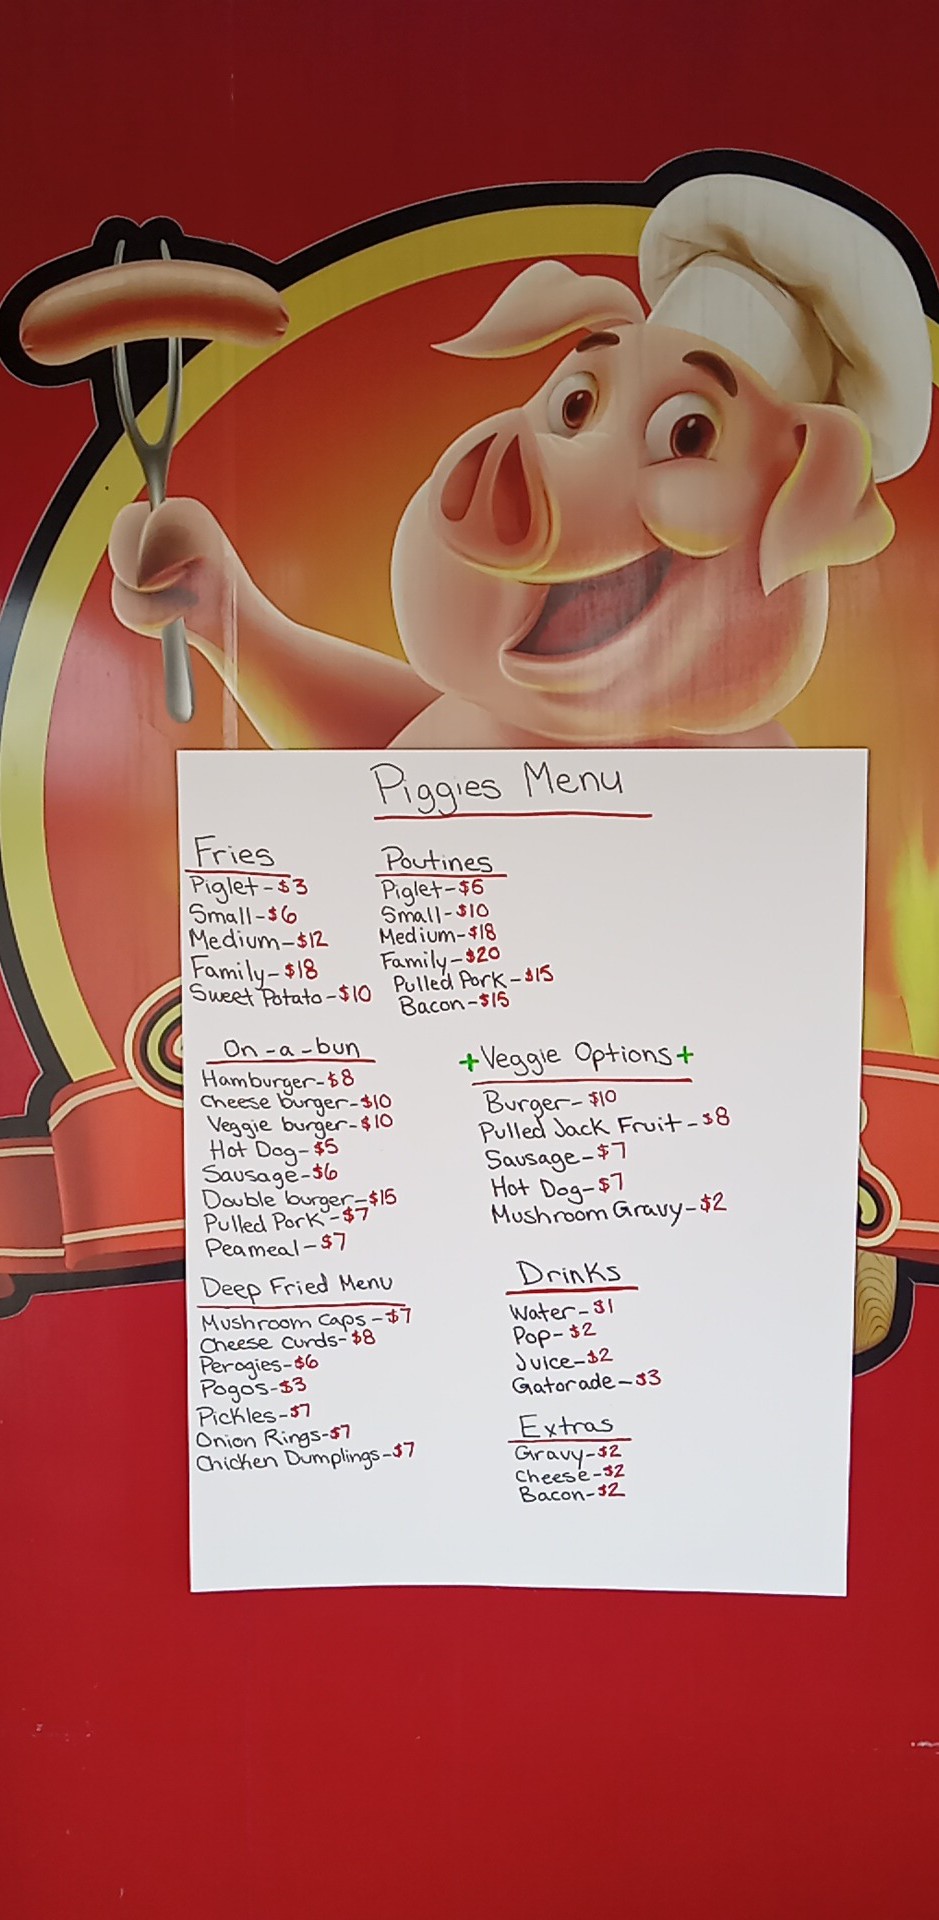 Piggies Menu
Fries
Piglet-$3
Small-$6
Medium-$12
Family-$18
Sweet Potato-$10
Poutines
Piglet-$6
Small-$10
Medium-$18
Family-$20
Pulled Pork-$15
Bacon-$15
On-a-bun
Hamburger-$8
Cheese burger-$10
Veggie burger-$10
Hot Dog-$5
Sausage-$6
Double burger-$15
Pulled Pork-$7
Peameal-$7
+Veggie Options+
Burger-$10
Pulled Jack Fruit-$8
Sausage-$7
Hot Dog-$7
Mushroom Gravy-$2
Deep Fried Menu
Mushroom Caps-$7
Cheese Curds-$8
Perogies-$6
Pogos-$3
Pickles-$7
Onion Rings-$7
Chicken Dumplings-$7
Drinks
Water-$1
Pop-$2
Juice-$2
Gatorade-$3
Extras
Gravy-$2
Cheese-$2
Bacon-$2